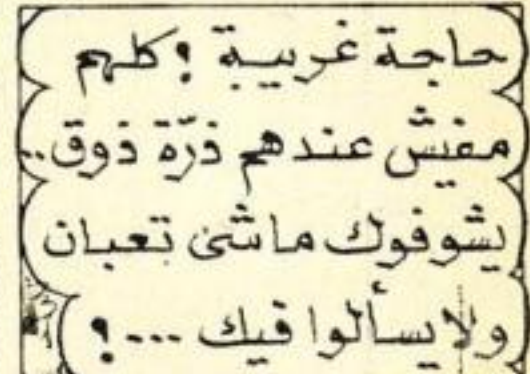 حاجة غريبة ؟ كلهم
مفيش عندهم ذرّة ذوق..
يشوفوك ماشى تعبان
ولا يسألوا فيك ...؟